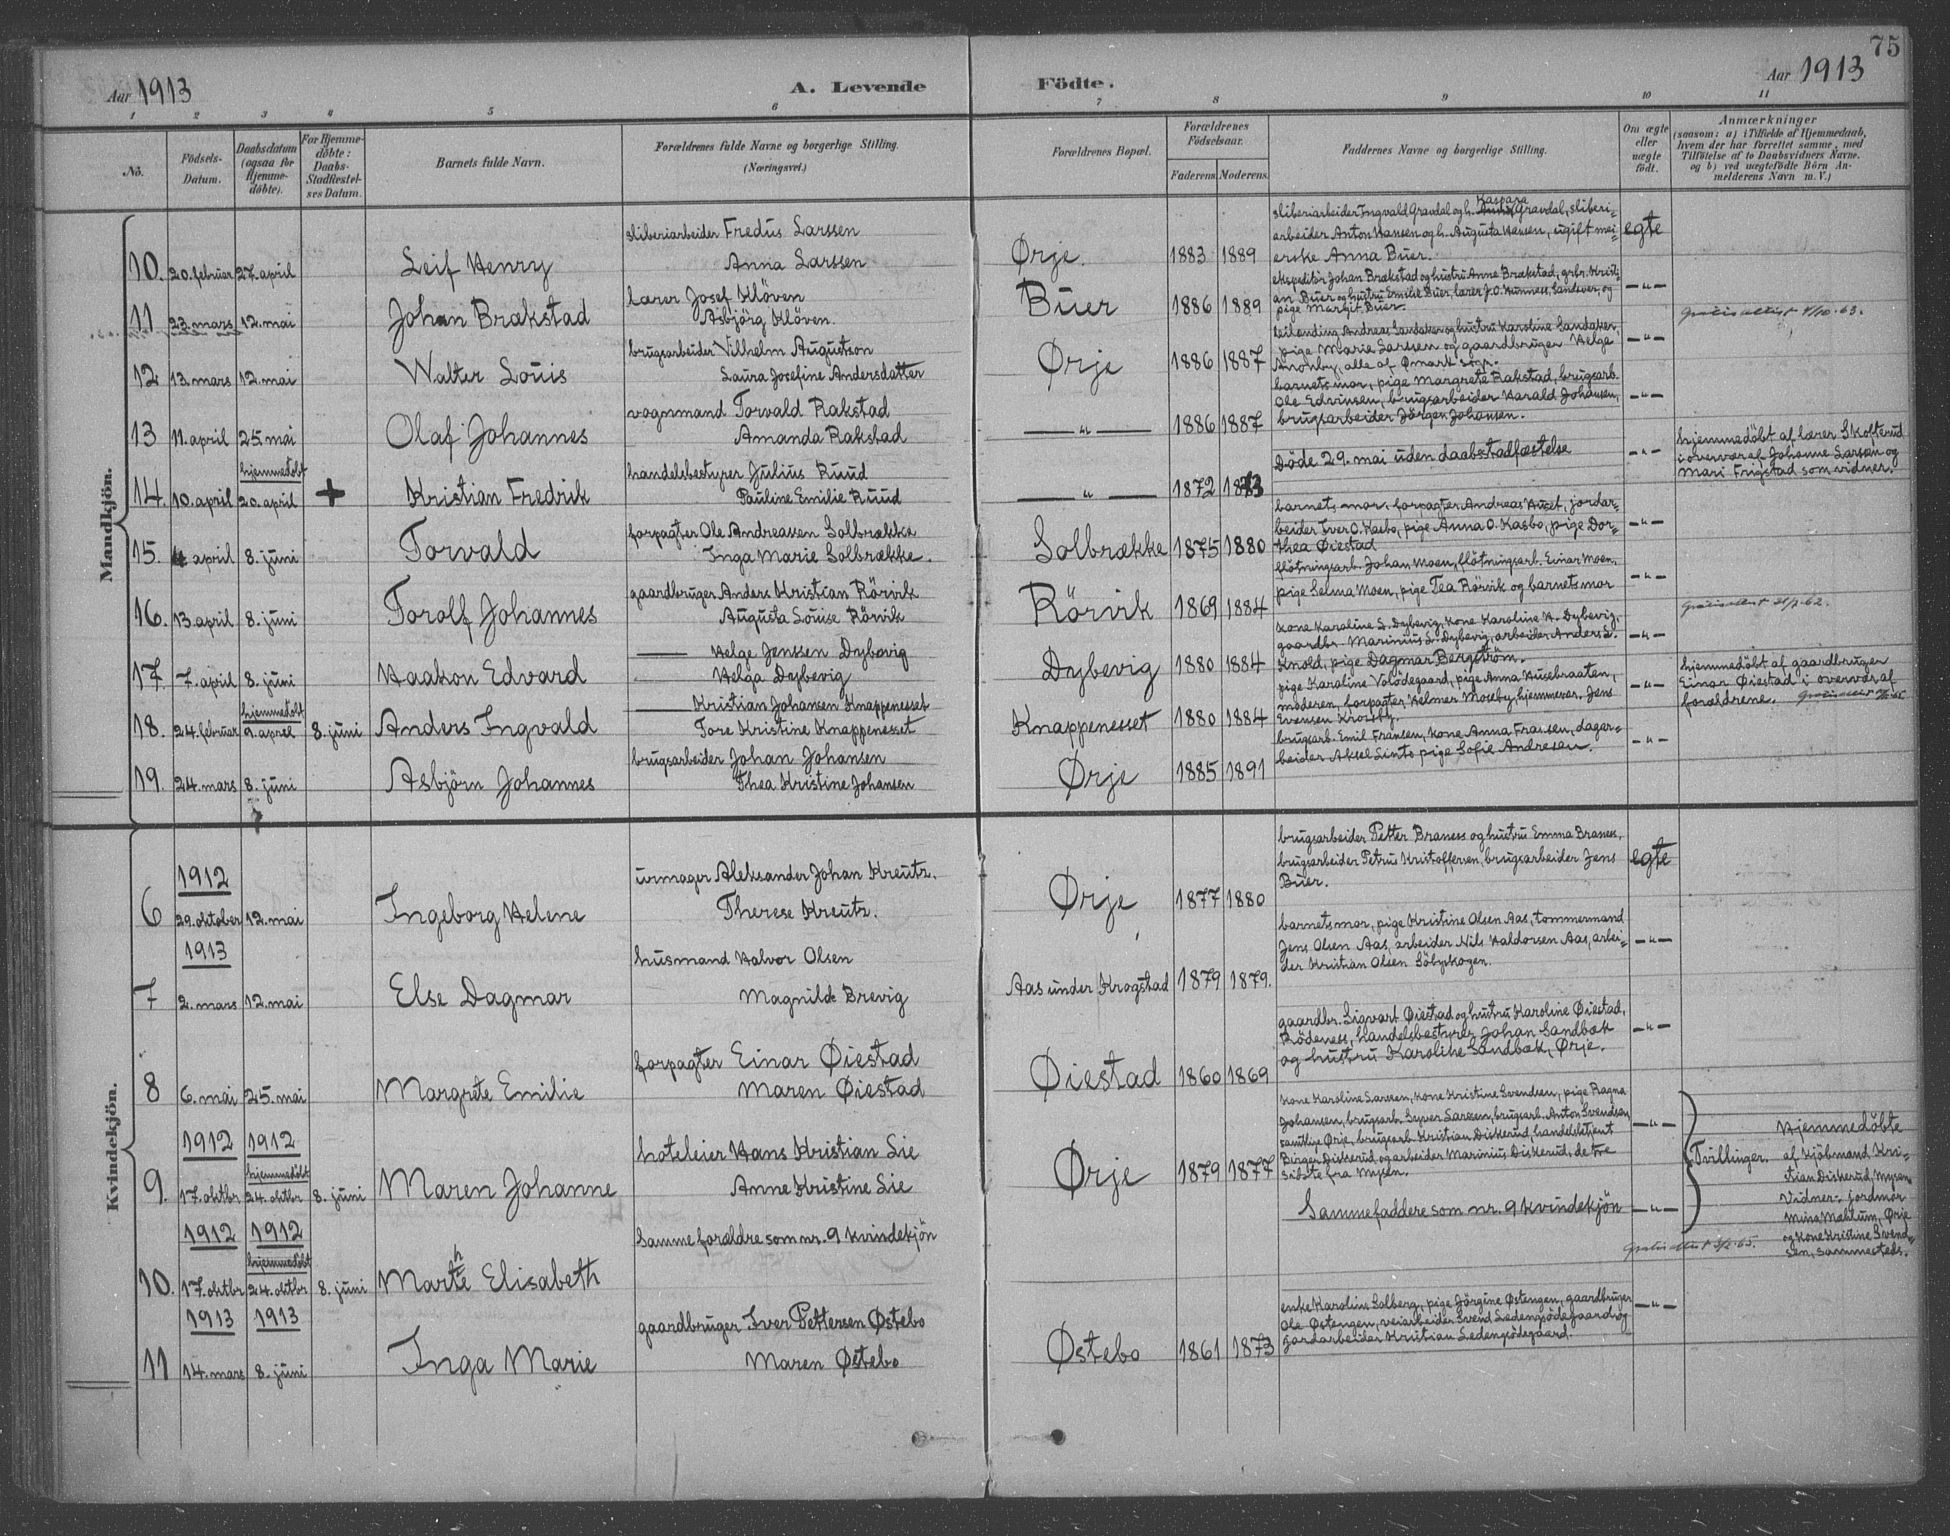 75
Aar 1913
A. Levende Födte.
Aar 1913
1 2 3 4 5 6 7 8 9 10 11
No.
Födsels-Datum.
Daabsdatum (ogsaa for Hjemme-döbte).
For Hjemme-döbte: Daabs-Stadfæstel-ses Datum.
Barnets fulde Navn.
Forældrenes fulde Navne og borgerlige Stilling. (Næringsvei.)
Forældrenes Bopæl.
Forældrenes Födselsaar.
Faderens. Moderens.
Faddernes Navne og borgerlige Stilling.
Om ægte eller uægte födt.
Anmærkninger
(saasom: a) i Tilfælde af Hjemmedaab, hvem der har forrettet samme, med Tilföielse af to Daabsvidners Navne. og b) ved uægtefödte Börn An-melderens Navn m. V.)
Mandkjön.
10. 20. februar 27. april
Leif Henry
sliberiarbeider Fredus Larssen
Anna Larssen
Ørje. 1883 1889
sliberiarbeider Ingvald Gravdal og h. Kaspara Gravdal, sliberi-
arbeider Anton Hansen og h. Augusta Hansen, ugift mei-
erske Anna Buer.
egte
11 23. mars 12. mai
Johan Brækstad
lærer Josef Klöven
Asbjörg Klöven.
Buer 1886 1889
ekspeditör Johan Brækstad og hustru Anne Brækstad, grbr. Kristi-
an Buer og hustru Emilie Buer, lærer J. O. Hunness, Sandsver, og
pige Margit Buer.
-"-
12 13. mars 12. mai
Walter Louis
brugsarbeider Vilhelm Augustson
Laura Josefine Andersdatter
Ørje 1886 1887
leilending Andreas Sandaker og hustru Karoline Sandaker,
pige Maria Larssen og gaardbruger Helge
Krosby, alle af Ømark sogn.
-"-
13 11. april 25. mai
Olaf Johannes
vognmand Torvald Rakstad
Amanda Rakstad
-"- 1886 1887
barnets mor, pige Margrete Rakstad, brugsarb.
Ole Edvinsen, brugsarbeider Harald Johansen,
brugsarbeider Jörgen Johansen.
-"-
14. 10. april hjemmedöbt 20. april +
Kristian Fredrik
handelsbestyrer Julius Ruud
Pauline Emilie Ruud
-"- 1872 1873
Döde 29. mai uden daabsstadfæstelse
-"-
hjemmedöbt af lærer Skofterud
i overvær af Johanne Larsen og
Mari Frigstad som vidner.
15. 4 april 8. juni
Torvald
forpagter Ole Andreassen Solbrække
Inga Marie Solbrække.
Solbrække 1875 1880
barnets mor, forpagter Andreas Huset, jordar-
beider Iver O. Kasbo, pige Anna O. Kasbo, pige Dor-
thea Øiestad
-"-
16. 13 april 8. juni
Torolf Johannes
gaardbruger Anders Kristian Rörvik
Augusta Louise Rörvik
Rörvik 1869 1884
flötningsarb. Johan Moen, flötningsarb. Einar Moen,
pige Selma Moen, pige Tea Rörvik og barnets mor
-"-
17. 7. april 8. juni
Haakon Edvard
— Helge Jenssen Dybevig
— Helga Dybevig
Dybevig 1880 1884
kone Karoline S. Dybevig, kone Karoline H. Dybevig,
gaardbr. Marinius L. Dybevig, arbeider Anders L.
Knold, pige Dagmar Bergström.
-"-
18. 24. februar hjemmedöbt 9. april 8. juni
Anders Ingvald
— Kristian Johansen Knappenesset
Tore Kristine Knappenesset
Knappenesset 1880 1884
pige Karoline Volodegaard, pige Anna Husebraaten,
moderen, forpagter Helmer Moseby, hjemmevær. Jens
Evensen Krossby.
-"-
hjemmedöbt af gaardbruger
Einar Øiestad i overvær af
forældrene.
19. 24. mars 8. juni
Asbjörn Johannes
brugsarbeider Johan Johansen
Thea Kristine Johansen
Ørje 1885 1891
brugsarb. Emil Fransen, kone Anna Fransen, dagar-
beider Aksel Linto pige Sofie Andresen.
-"-
Kvindekjön.
6 1912 29. oktober 12. mai
Ingeborg Helene
urmager Aleksander Johan Kreutz.
Therese Kreutz.
Ørje 1877 1880
brugsarbeider Petter Braness og hustru Emma Braness,
brugsarbeider Petrus Kristoffersen, brugsarbeider Jens
Buer.
egte
7 1913 2. mars 12. mai
Else Dagmar
husmand Halvor Olsen
Magnilde Brevig
Aas under Krogstad 1879 1879.
barnets mor, pige Kristine Olsen Aas, tømmermand
Jens Olsen Aas, arbeider Nils Haldorsen Aas, arbei-
der Kristian Olsen Söbyskogen.
-"-
8 6. mai 25. mai
Margrete Emilie
forpagter Einar Øiestad
Maren Øiestad
Øiestad 1860 1869
gaardbr. Sigvart Øiestad og hustru Karoline Øiestad,
Rödeness, handelsbestyrer Johan Sandbæk
og hustru Karoline Sandbæk, Ørje.
-"-
9. 1912 17. oktbr 1912 hjemmedöbt 24. oktbr 8. juni
Maren Johanne
hoteleier Hans Kristian Lie
Anne Kristine Lie
Ørje 1879 1877
kone Karoline Larssen, kone Kristine Svendsen, pige Ragna
Johansen, brugsarb. Syver Larssen, brugsarb. Anton Svendsen
samtlige Ørje, brugsarb. Kristian Diskerud, handelsbetjent
Birger Diskerud, og arbeider Marinius Diskerud, de tre
sidste fra Mysen.
-"-
Tvillinger.
Hjemmedöbte
af kjöbmand Kri-
stian Diskerud, Mysen
Vidner: jordmor
Mina Mahtum, Ørje
og kone Kristine Svend-
sen, sammesteds.
10. 1912 17. oktbr 1912 hjemmedöbt 24. oktbr 8. juni
Marthe Elisabeth
Samme forældre som nr. 9 kvindekjön
Samme faddere som nr. 9 kvindekjön
-"-
11 1913 14. mars 1913 8. juni
Inga Marie
gaardbruger Iver Pettersen Østebo
Maren Østebo
Østebo 1861 1873
enke Karoline Solberg, pige Jörgine Østengen, gaardbruger
Ole Østengen, veiarbeider Svend Ledengsödegaard og
jordarbeider Kristian Ledengsödegaard.
-"-